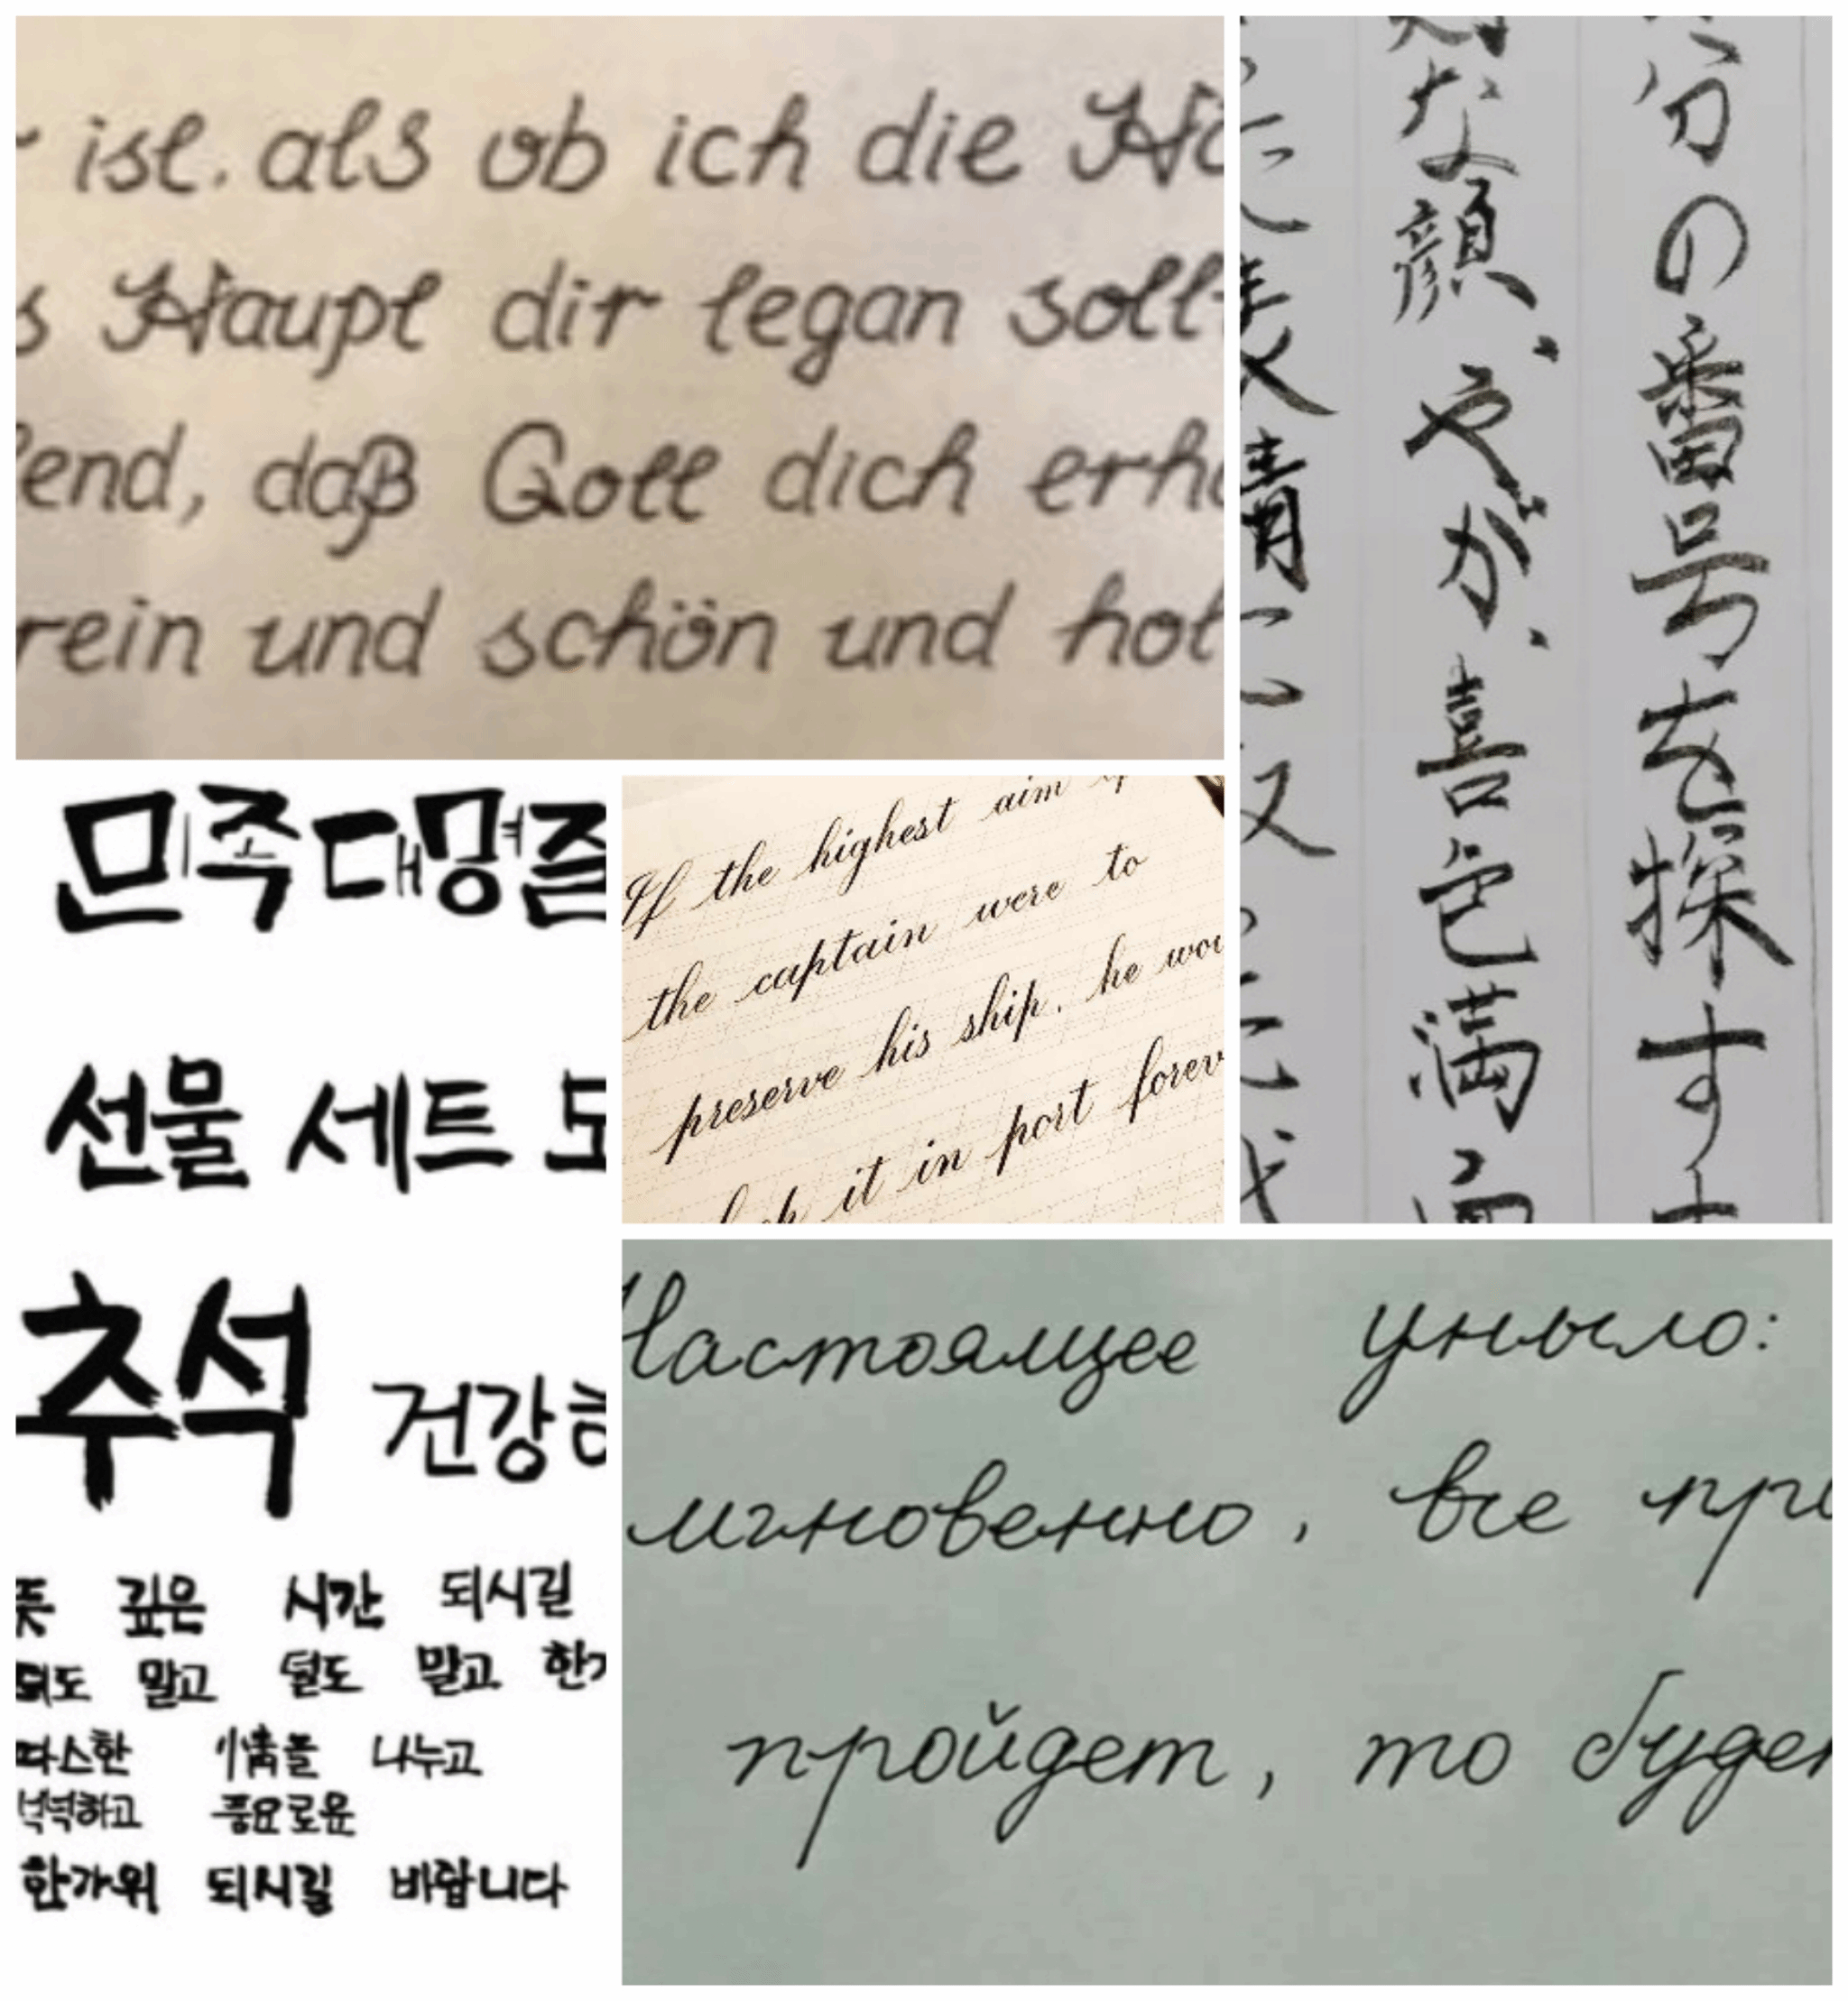 ist. als ob ich die
Haupt dir legan soll
end, daß Gott dich
rein und schön und
分の番号を探す
な顔、やが、喜色満面
情
민족대명절
선물 세트
추석 건강
뜻 깊은 시간 되시길
더도 말고 덜도 말고
따스한 情을 나누고
넉넉하고 풍요로운
한가위 되시길 바랍니다
If the highest aim
the captain were to
preserve his ship, he
it in port
Настоящее уныло:
мгновенно, все
пройдет, то